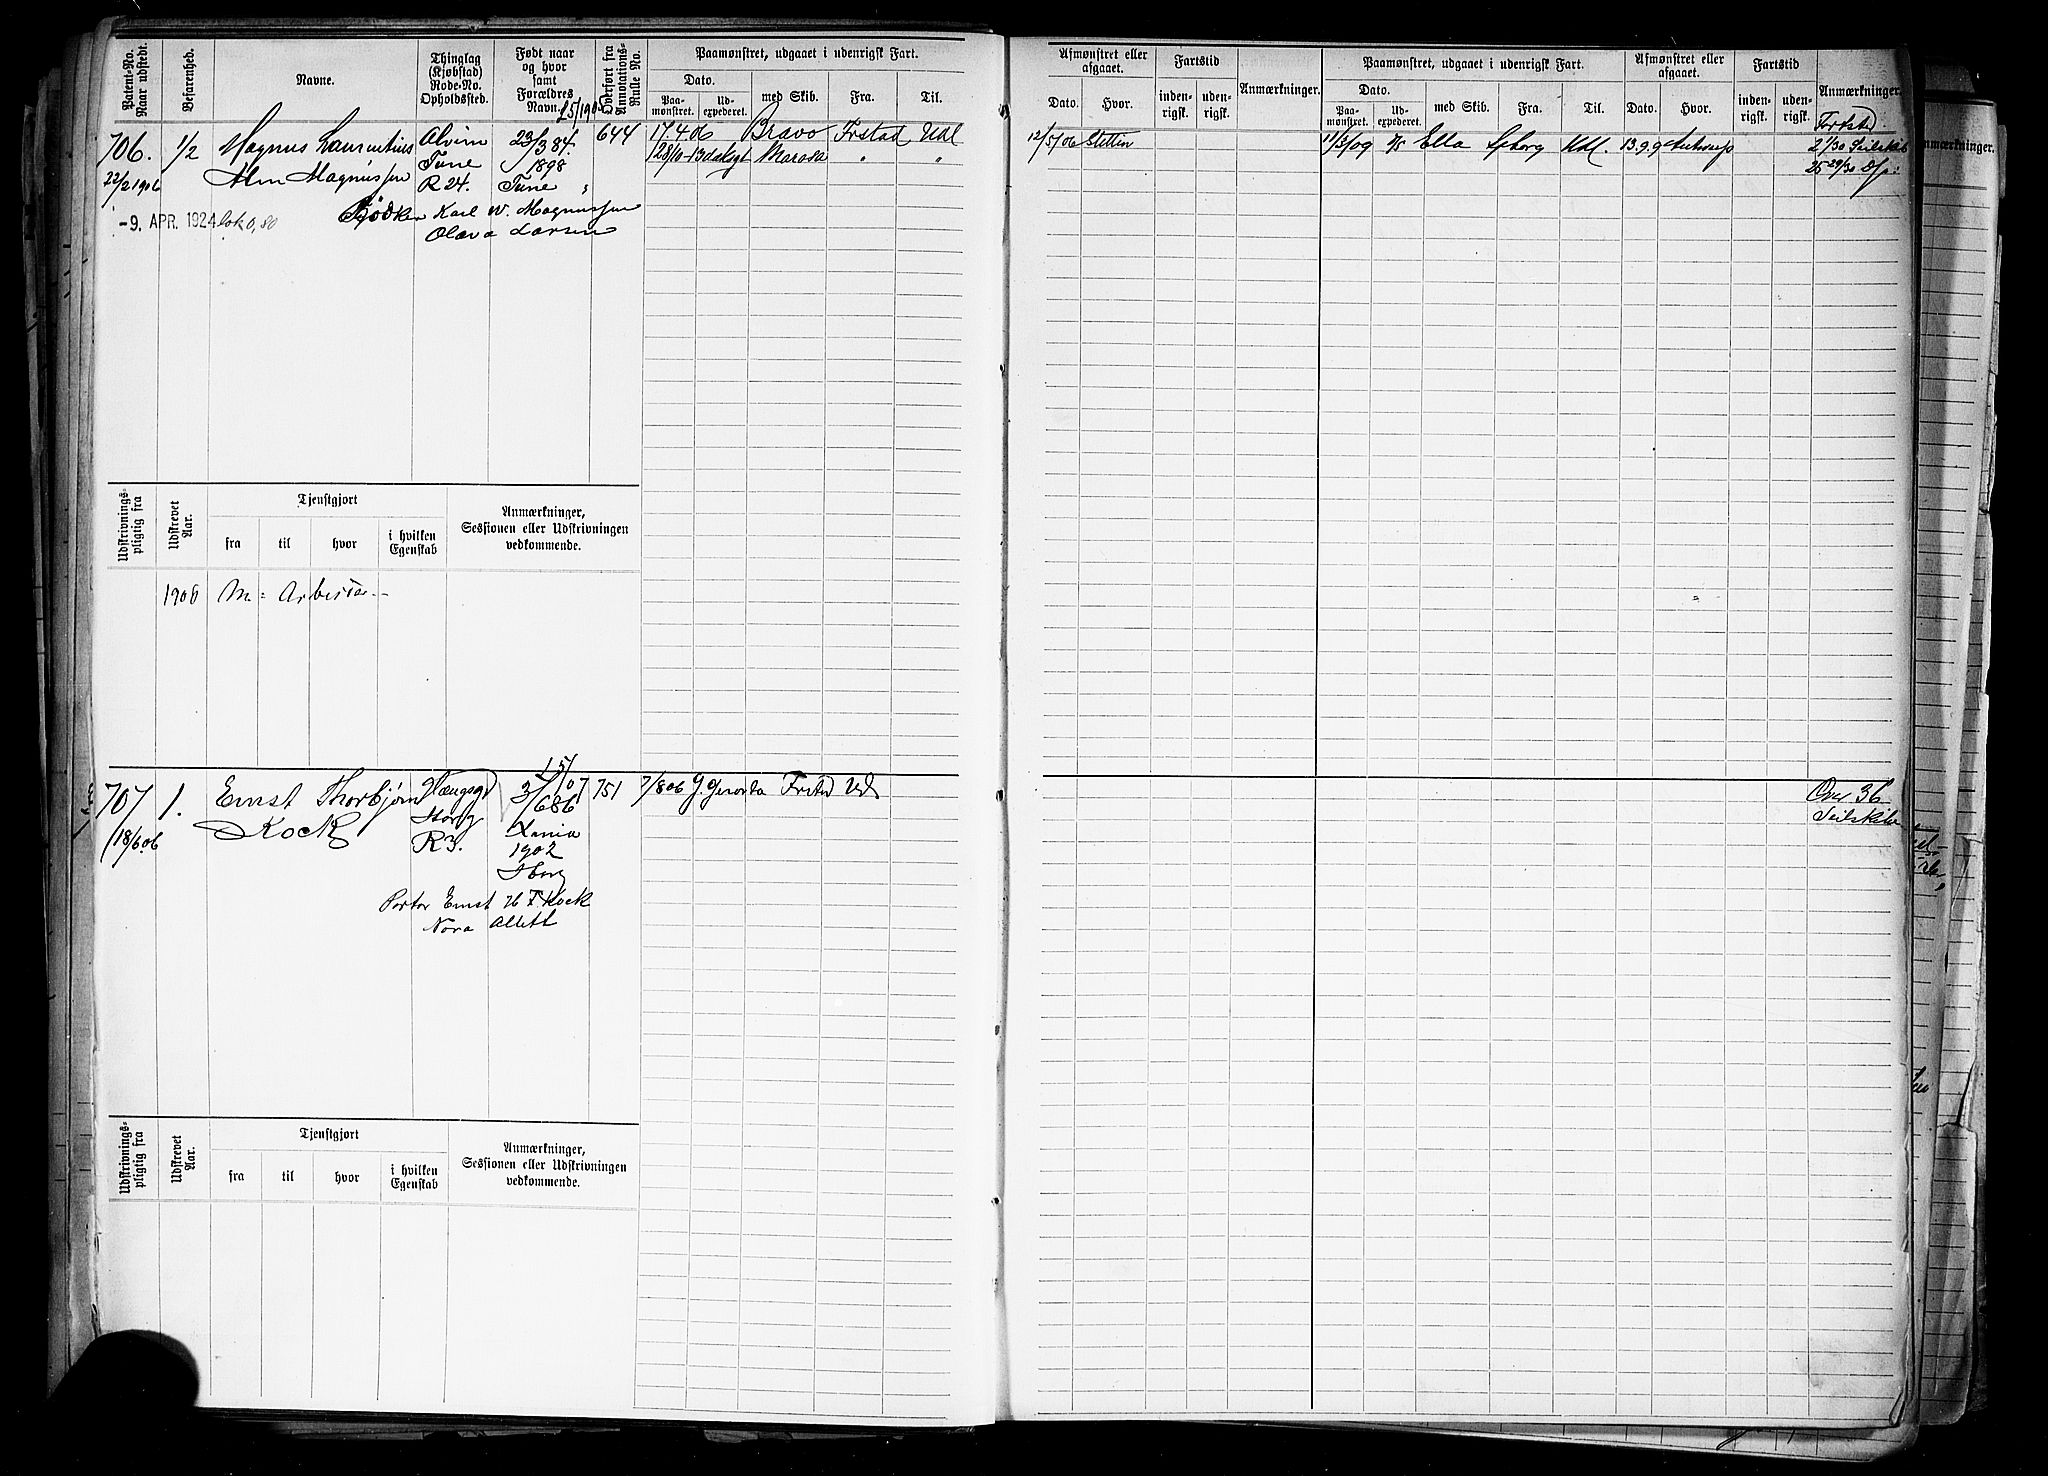 Patent-No. Naar udstedt.
Befarenhed.
Navne.
Thinglag (Kjøbstad) Rode-No. Opholdssted.
Født naar og hvor samt Forældres Navn.
Overført fra Annotations-Rulle No.
Paamønstret, udgaaet i udenrigsk Fart.
Dato.
Paamønstret.
Udexpederet.
med Skib.
Fra.
Til.
Afmønstret eller afgaaet.
Dato.
Hvor.
Fartstid
indenrigsk.
udenrigsk.
Anmærkninger.
Paamønstret, udgaaet i udenrigsk Fart.
Dato.
Paamønstret.
Udexpederet.
med Skib.
Fra.
Til.
Afmønstret eller afgaaet.
Dato.
Hvor.
Fartstid
indenrigsk.
udenrigsk.
Anmærkninger.
Anmærkninger.
15/1905
706. 1/2 Magnus Laurentius Alvim 23/3 84. 644 17.4.06 Bravo Frstad Udl 12/5/06 Stettin 11/3/09 Ella Sborg Udl. 13.9.9 Antverp
22/2 1906 Magnussen Tune 1898 28/10-13 " "
R 24. Tune "
-9. APR. 1924 0,80 Bødker Karl W. Magnussen
Olava Larsen
Udskrivningspligtig fra
Udskrevet Aar.
Tjenstgjort
fra
til
hvor
i hvilken Egenskab
Anmærkninger, Sessionen eller Udskrivningen vedkommende.
1906 M: Arbeider
15/
707 1. Ernst Thorbjørn 3/6 86 07 751 7/8 06 Frstad Udl Over 36
18/6 06 Kock R 3. 1902 Seilskibe
Sborg
Ernst H F Kock
Nora
Udskrivningspligtig fra
Udskrevet Aar.
Tjenstgjort
fra
til
hvor
i hvilken Egenskab
Anmærkninger, Sessionen eller Udskrivningen vedkommende.